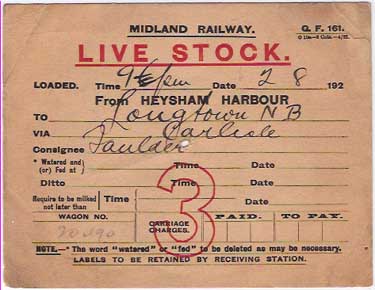 MIDLAND RAILWAY. G. F. 161.
LIVE STOCK.
LOADED. Time pm Date 2 8 192
From HEYSHAM HARBOUR
TO Longtown NB
VIA Carlisle
Consignee Faulder
* Watered and)
(or) Fed at ) Time Date
Ditto Time Date
Require to be milked
not later than Time Date
WAGON NO. CARRIAGE CHARGES. PAID. TO PAY.
3
NOTE.—* The word "watered" or "fed" to be deleted as may be necessary.
LABELS TO BE RETAINED BY RECEIVING STATION.